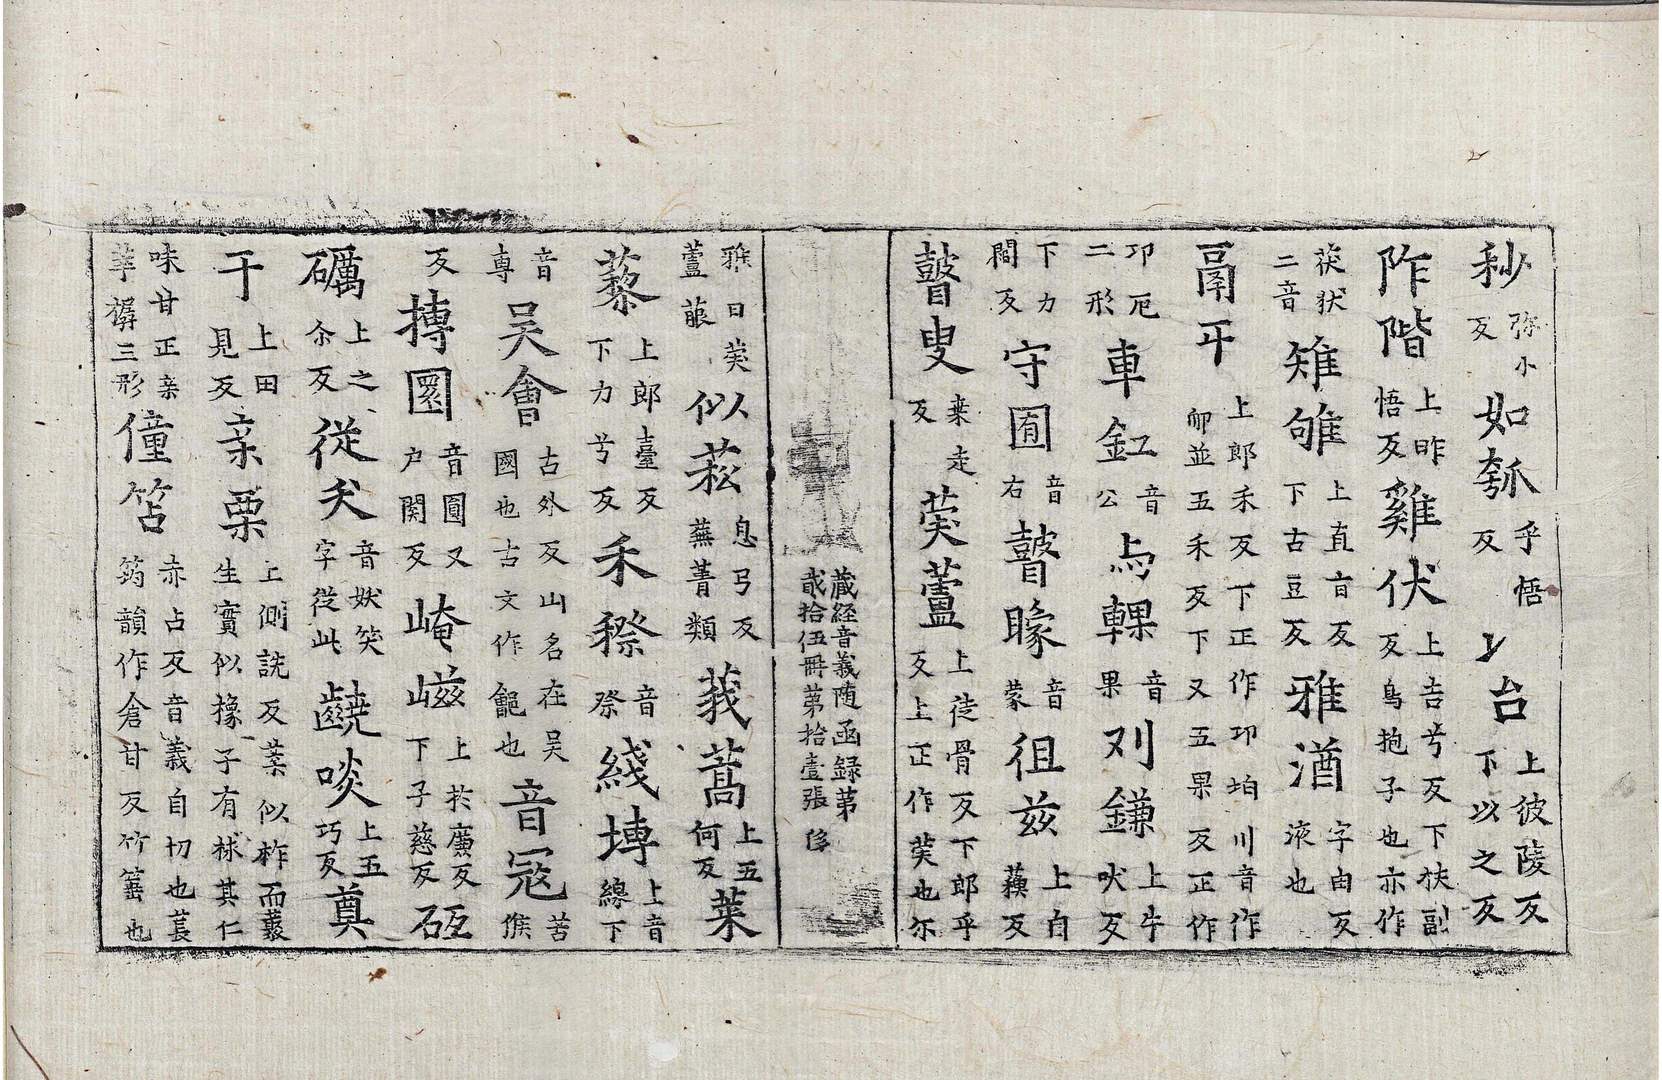 秒弥小反如瓠乎悟反丶台上彼陵反下以之反
阼階上昨悟反雞伏上吉兮反下扶副反鳥抱子也亦作
茯狀二音雉雊上直盲反下古豆反雅酒字由反液也
鬲平上郎禾反下正作卭㘴川音作卹並五禾反下又五果反正作
卭厄二形車釭音公与輠音果刈鎌上牛吠反
下力闇反守囿音右瞽矇音蒙徂兹上自蘓反
瞽叟桒走反葖蘆上徒骨反下郎乎反上正作葖也尓
藏経音義随函録第貳拾伍冊第拾壹張 侈
雅曰葖蘆萉似菘息弓反蕪菁類莪蒿上五何反萊
藜上郎臺反下力兮反禾穄音祭綫塼上音線下
音專吴會古外反山名在吴國也古文作㒑也音冦苦候
反摶圜音圓又户関反崦嵫上扵廉反下子慈反砥
礪上之尒反從犬音妖笑字從此齩啖上五巧反奠
干上田見反亲栗上側詵反葉似柞而叢生實似橡子有梂其仁
味甘正亲莘樼三形僮笘赤占反音義自切也萇筠韻作倉甘反竹箠也